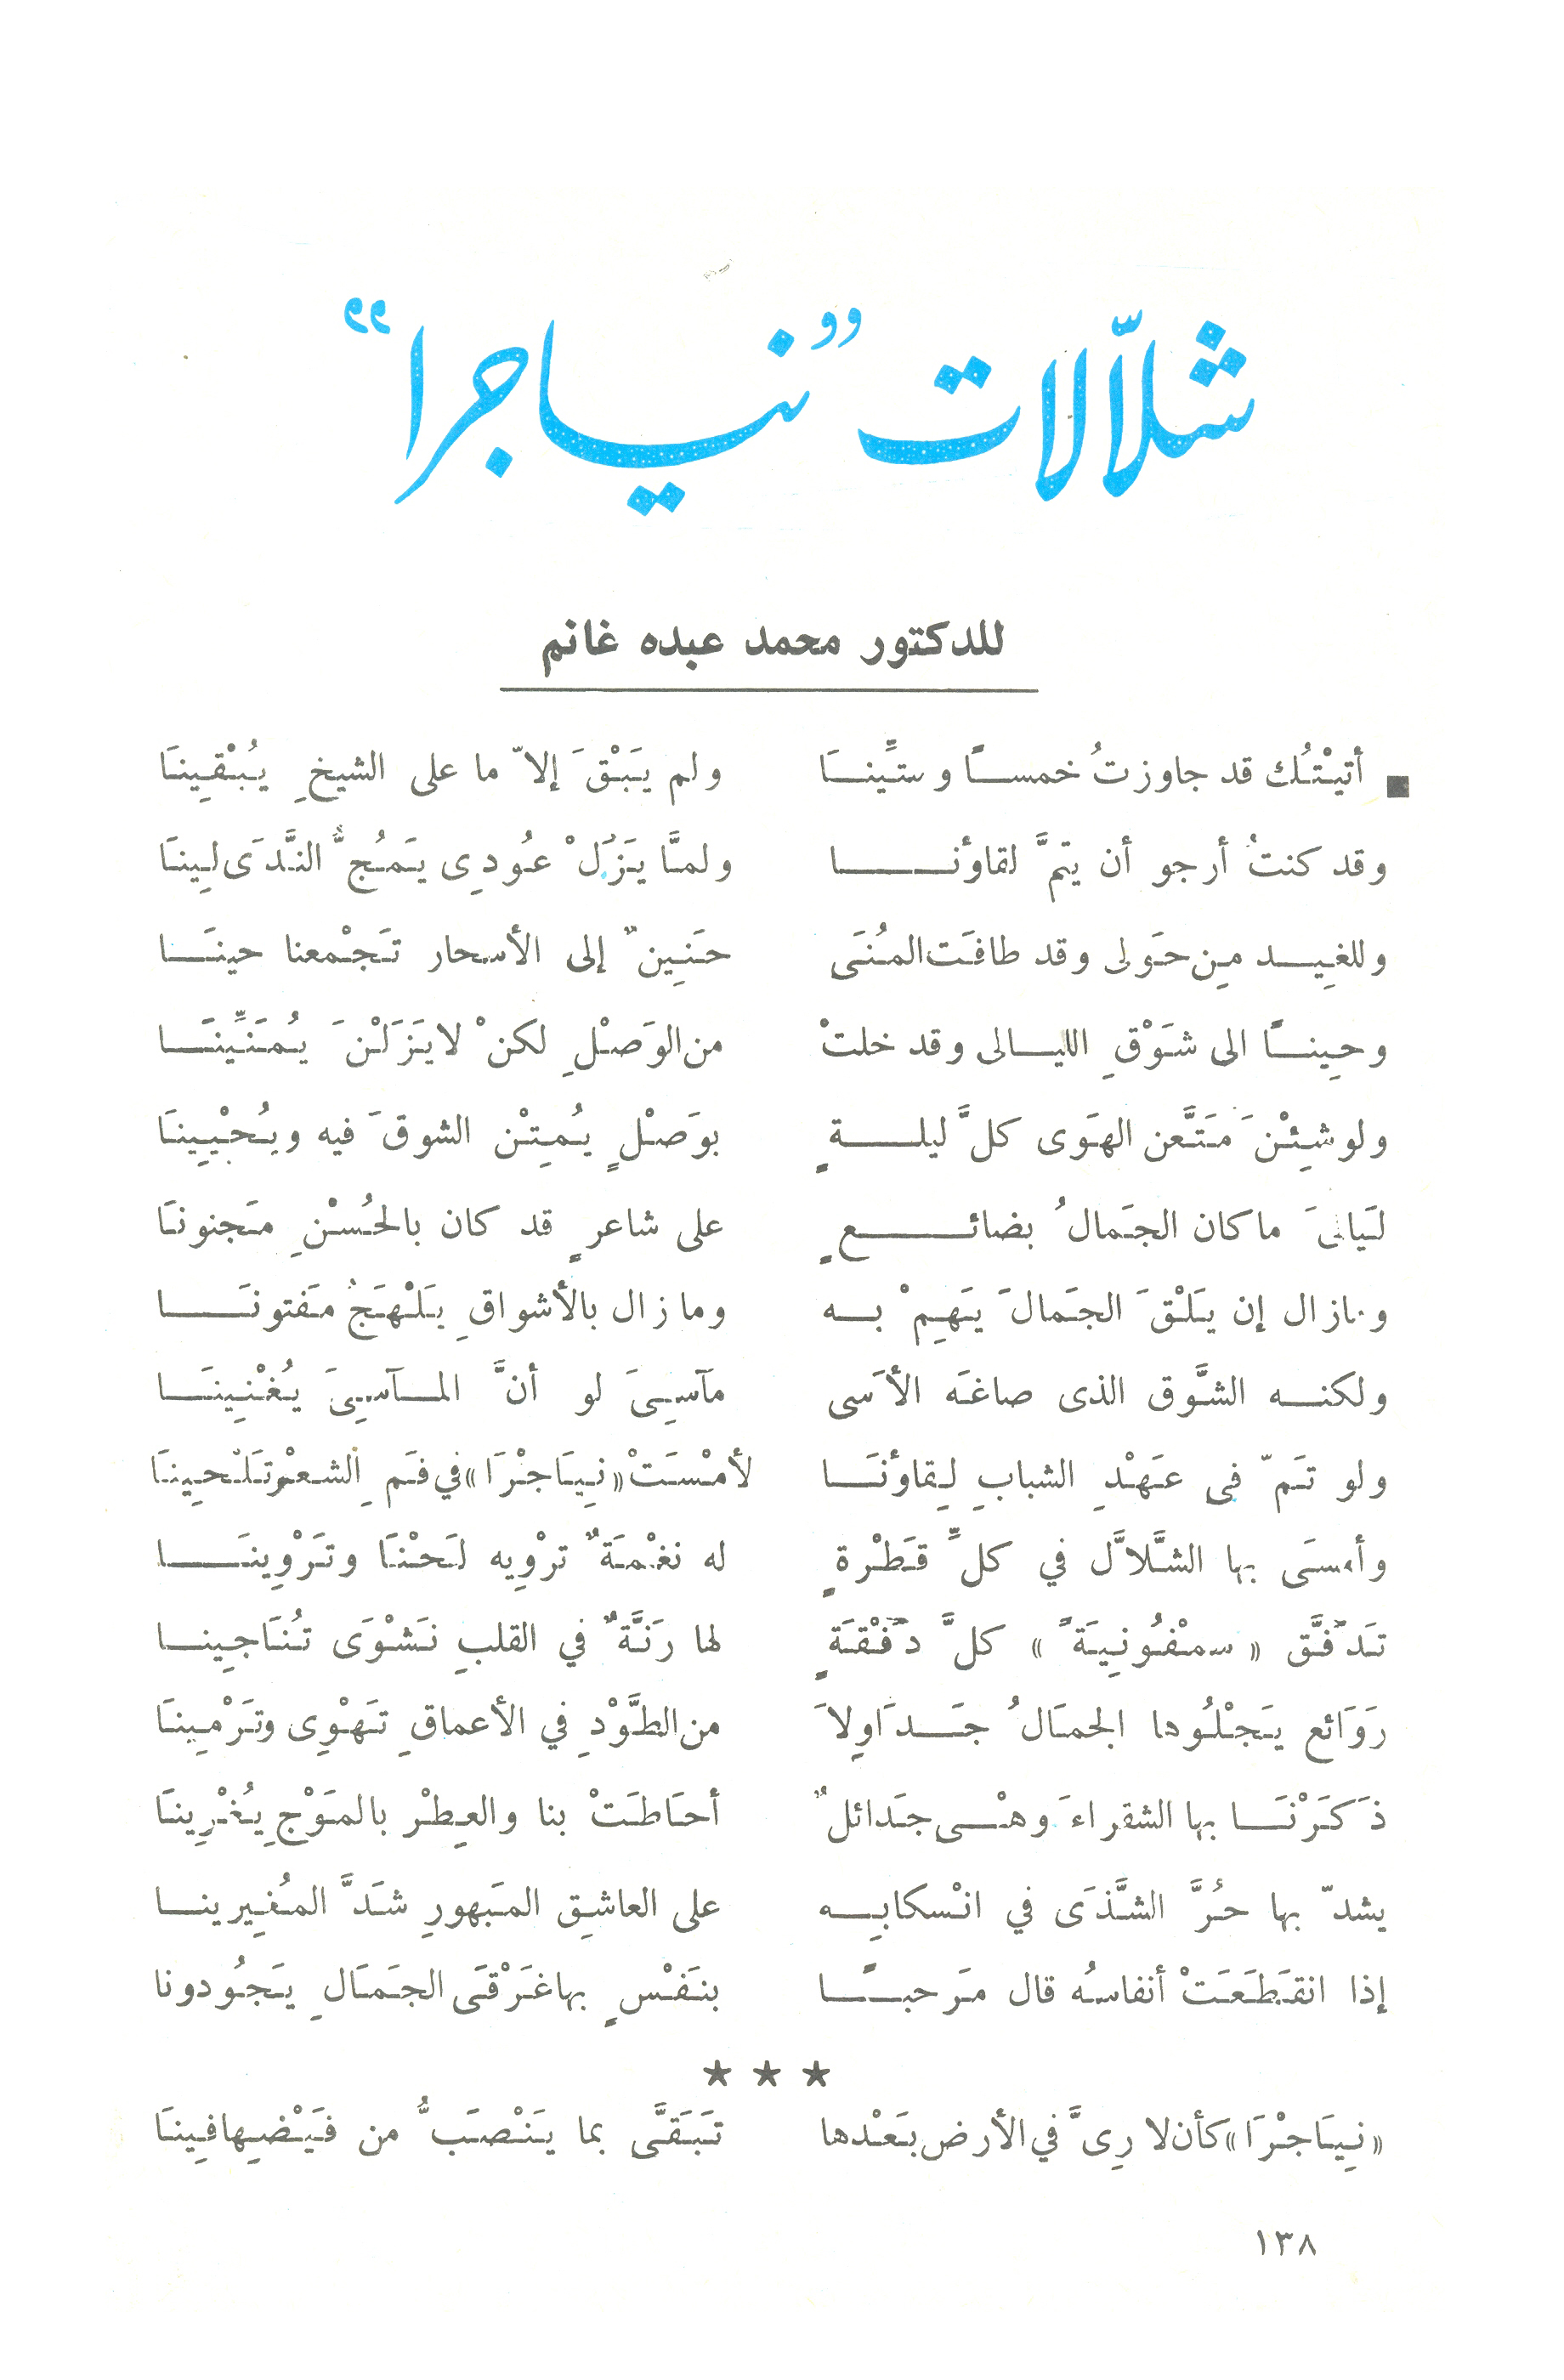 شلّالات "نياجرا"
للدكتور محمد عبده غانم
■ أتيْتُك قد جاوزتُ خمسًا وستِّينا ولم يَبْقَ إلاّ ما على الشيخِ يُبْقِينَا
وقد كنتُ أرجو أن يتمَّ لقاؤنا ولمَّا يَزَلْ عُودِى يَمُجُّ النَّدَى لِينَا
وللغِيد مِن حَولى وقد طافَت المُنَى حَنِينٌ إلى الأسحار تَجْمعنا حينَا
وحِينًا الى شَوْقِ الليالى وقد خلتْ من الوَصْلِ لكنْ لا يَزَلْنَ يُمَنِّينَا
ولو شِئْنَ مَتَّعن الهَوى كلَّ ليلةٍ بوَصْلٍ يُمِتْن الشوقَ فيه ويُحْيِينَا
لَيالىَ ما كان الجَمالُ بضائعٍ على شاعرٍ قد كان بالحُسْنِ مَجنونَا
ومازال إن يَلْقَ الجَمالَ يَهِمْ به وما زال بالأشواقِ يَلْهَجُ مَفتونَا
ولكنه الشَّوق الذى صاغَه الأَسى مَآسِىَ لو أنَّ المآسِىَ يُغْنِينَا
ولو تَمّ فى عَهْدِ الشبابِ لِقاؤنَا لأمْسَتْ «نِيَاجْرَا» في فَمِ الشعْر تَلْحِينَا
وأمسَى بها الشَّلاَّل في كلِّ قَطْرةٍ له نَغْمَةٌ ترْوِيه لَحْنًا وتَرْوِينَا
تَدَفَّق «سمْفُونِيَةً» كلَّ دَفْقَةٍ لها رَنَّةٌ في القلبِ نَشْوَى تُنَاجِينا
رَوَائع يَجْلُوها الجمَالُ جَدَاوِلاَ من الطَّوْدِ في الأعماقِ تَهْوِى وتَرْمِينَا
ذَكَرْنَا بها الشقراءَ وهْى جَدائلٌ أحَاطَتْ بنا والعِطْر بالمَوْجِ يُغْرِينَا
يشدّ بها حُرَّ الشَّذَى في انْسكابِه على العاشِق المَبهورِ شَدَّ المُغِيرينا
إذا انقَطَعَتْ أنفاسُه قال مَرحبًا بنَفْسٍ بها غَرْقَى الجَمَالِ يَجُودونا
★ ★ ★
«نِيَاجْرَا» كأن لا رِىَّ في الأرض بَعْدها تَبَقَّى بما يَنْصَبُّ من فَيْضِها فِينَا
١٣٨